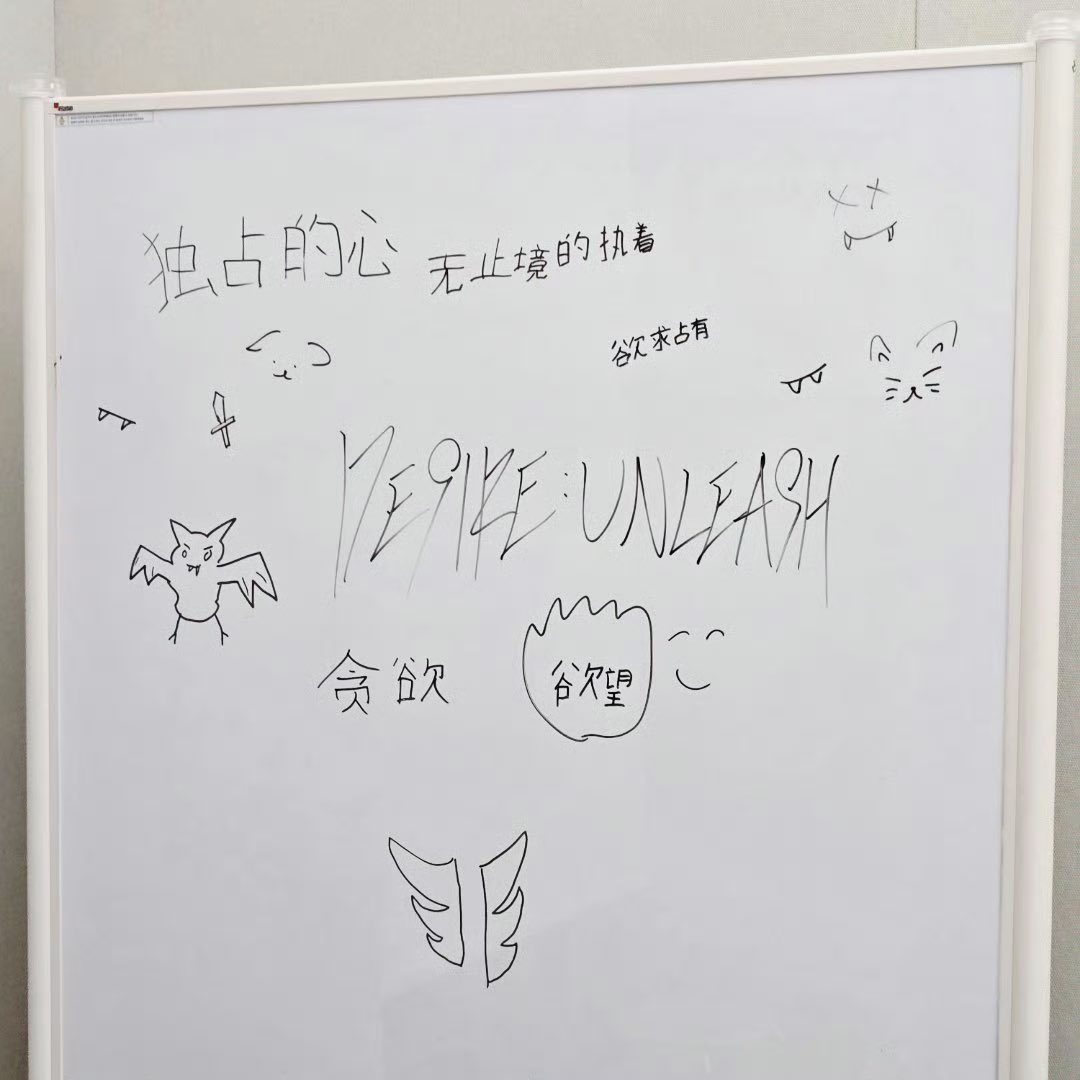 独占的心 无止境的执着
欲求占有
DESIRE:UNLEASH
贪欲
欲望